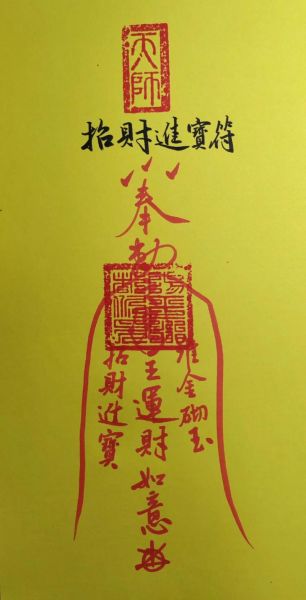 天師
招財進寶符
奉勅
王運財如意
堆金砌玉
招財進寶